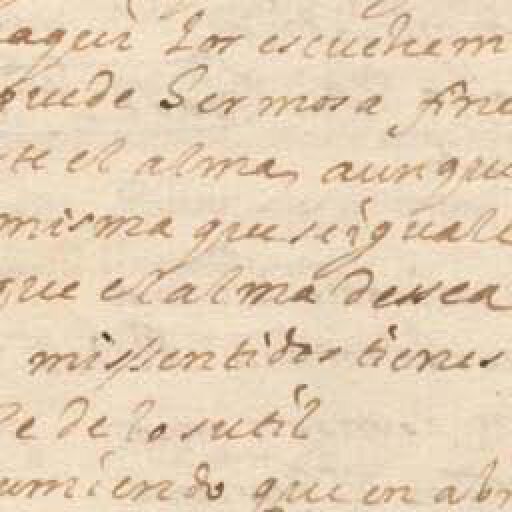 aqui los escuchem
puede Sermosa fine
te el alma, aunque
misma que se iguall
que el alma dessea
missentidos tienes
le de lo sutil
umiendo que en abr